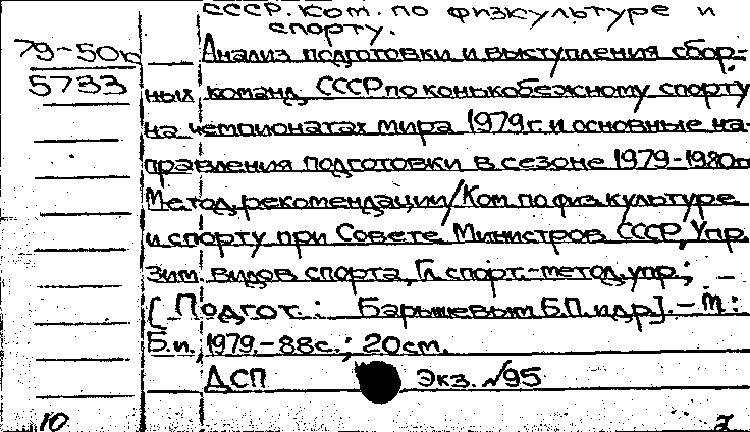 СССР. Ком. по физкультуре и
спорту.
79-50п
5733
Анализ подготовки и выступления сбор-
ных команд СССР по конькобежному спорту
на чемпионатах мира 1979 г. и основные на-
правления подготовки в сезоне 1979-1980гг
Метод. рекомендации/Ком. по физ. культуре
и спорту при Совете Министров СССР, Упр.
зим. видов спорта, Гл. спорт.-метод. упр.; –
[Подгот.: Барышевым Б.П. и др]. – М.:
Б.и., 1979. – 88с.; 20см.
ДСП Экз. №95
10 2